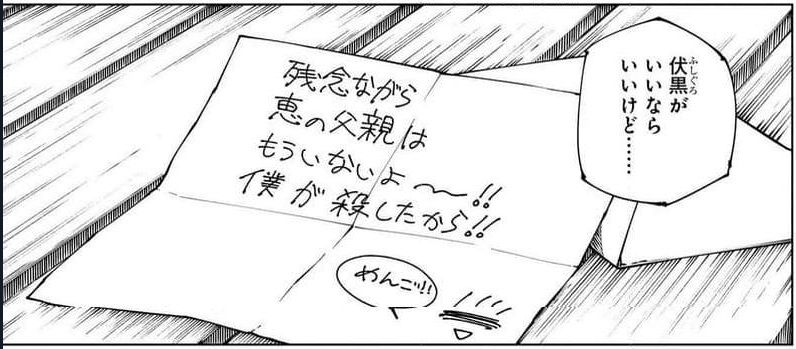 伏黒が
いいなら
いいけど……
ふしぐろ
残念ながら
恵の父親は
もういないよ〜〜!!
僕が殺したから!!
めんご!!